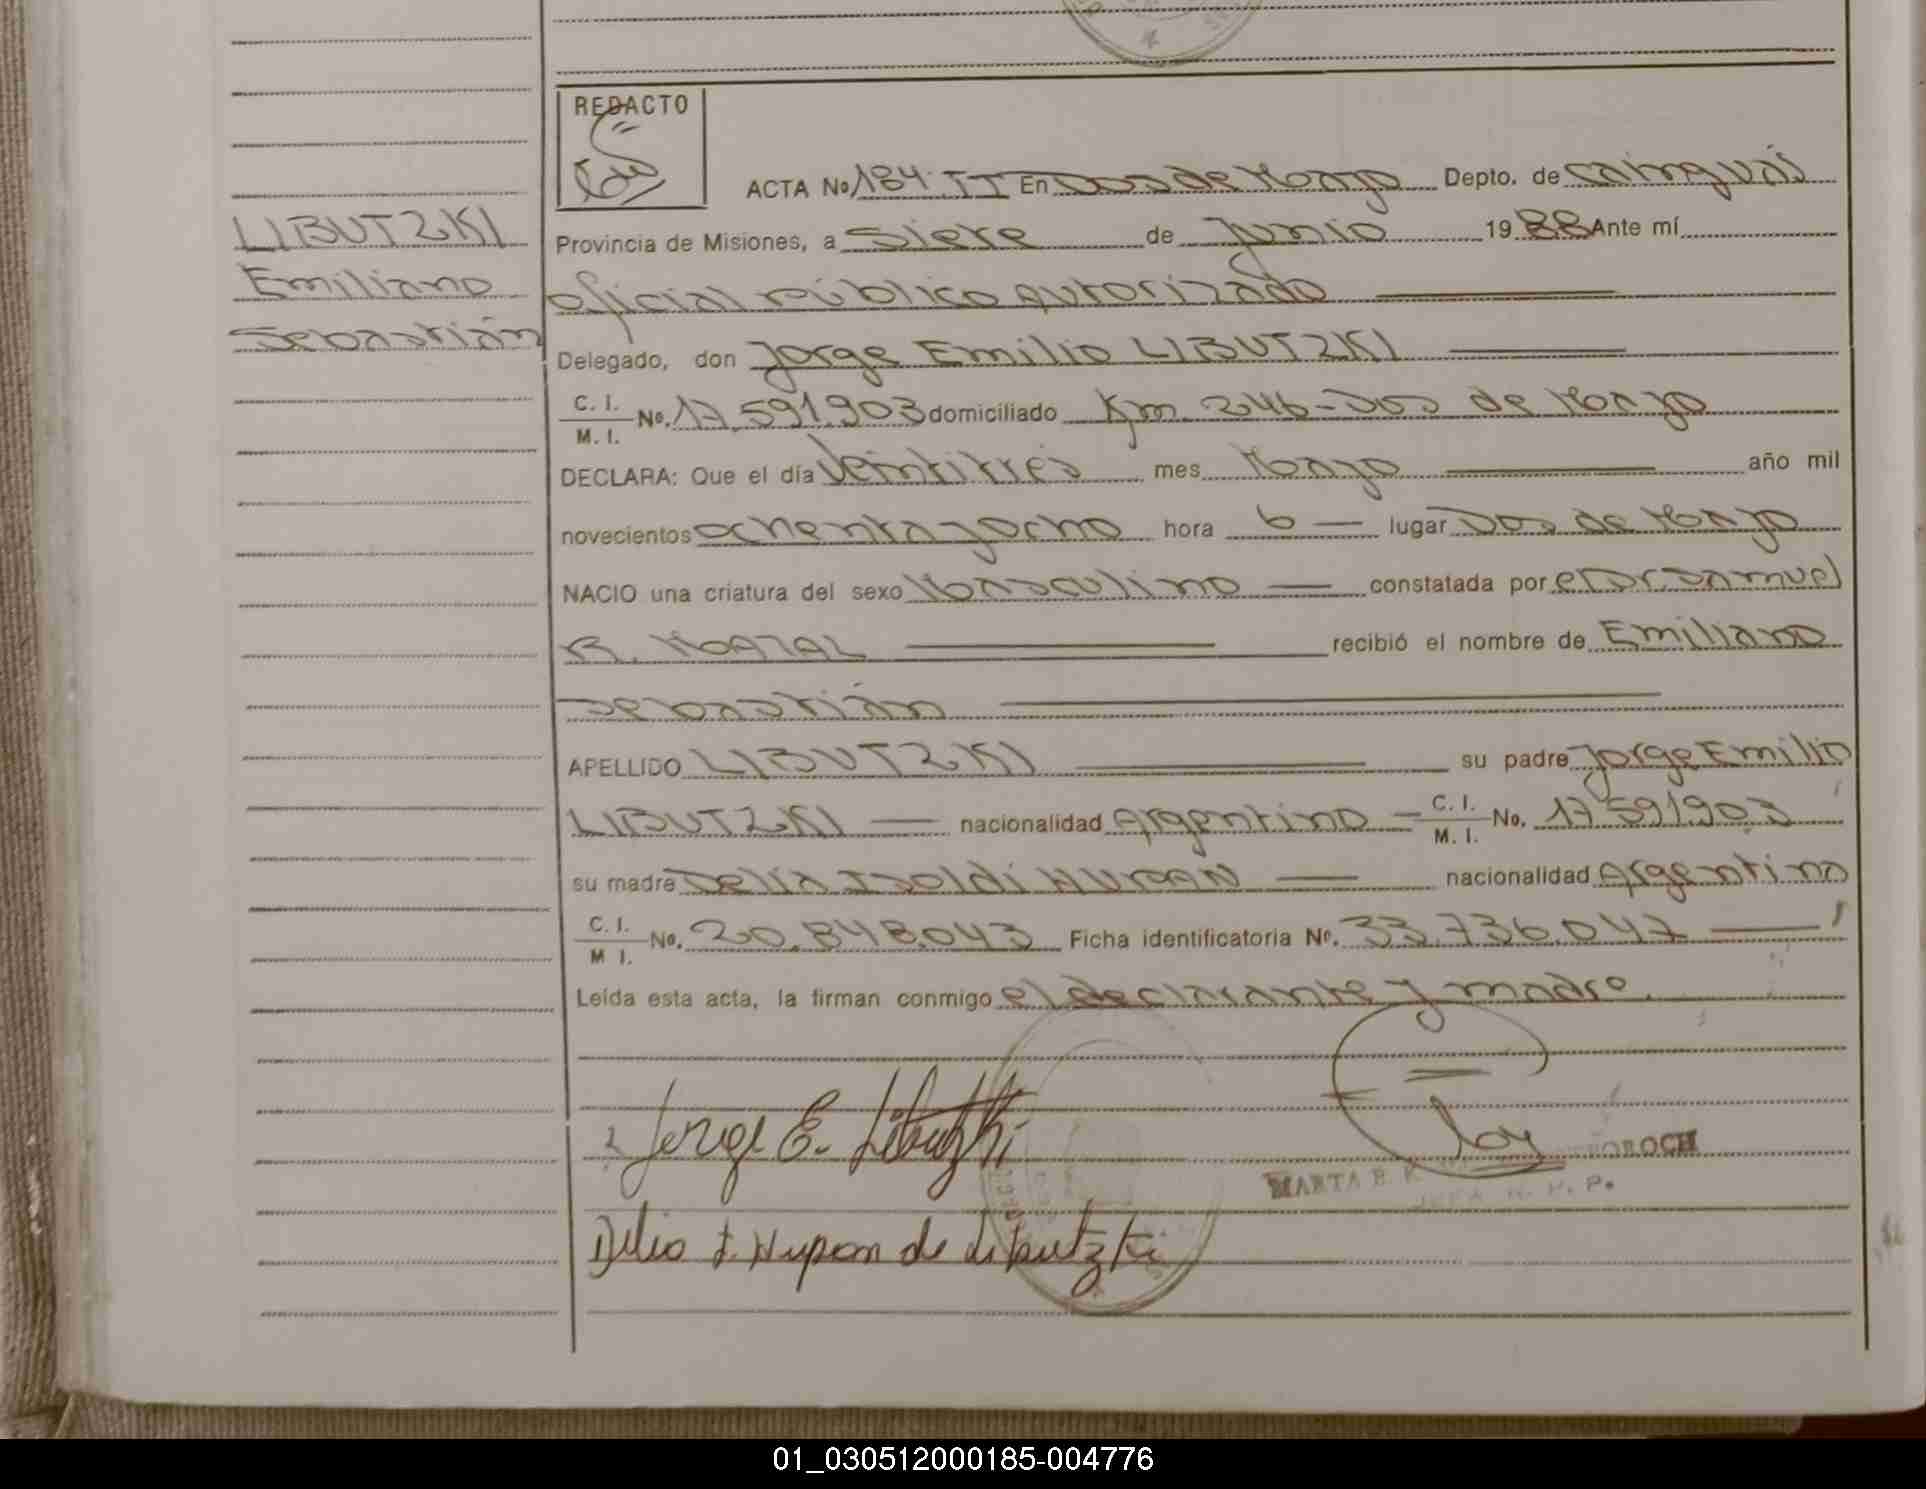 REDACTO
ACTA No 184 TI En Dos de Mayo Depto. de Cainguás
LIBUTZKI
Provincia de Misiones, a Siete de Junio 1988 Ante mí
Emiliano
oficial público autorizado
Sebastián
Delegado, don Jorge Emilio LIBUTZKI
C. I. M. I. No. 17.591.903 domiciliado Km. 246-Dos de Mayo
DECLARA: Que el día Veintitres mes Mayo año mil
novecientos ochenta y ocho hora 6 lugar Dos de Mayo
NACIO una criatura del sexo Masculino constatada por el Dr. Samuel
R. recibió el nombre de Emiliano
Sebastián
APELLIDO LIBUTZKI su padre Jorge Emilio
LIBUTZKI nacionalidad Argentino C. I. M. I. No. 17.591.903
su madre Delia Isoldi nacionalidad Argentina
C. I. M I. No. 20.848.043 Ficha identificatoria No. 33.736.047
Leída esta acta, la firman conmigo el declarante y madre.
Jorge E. Libutzki
MARTA B. K
Delia I. Hupan de Libutzki
01_030512000185-004776